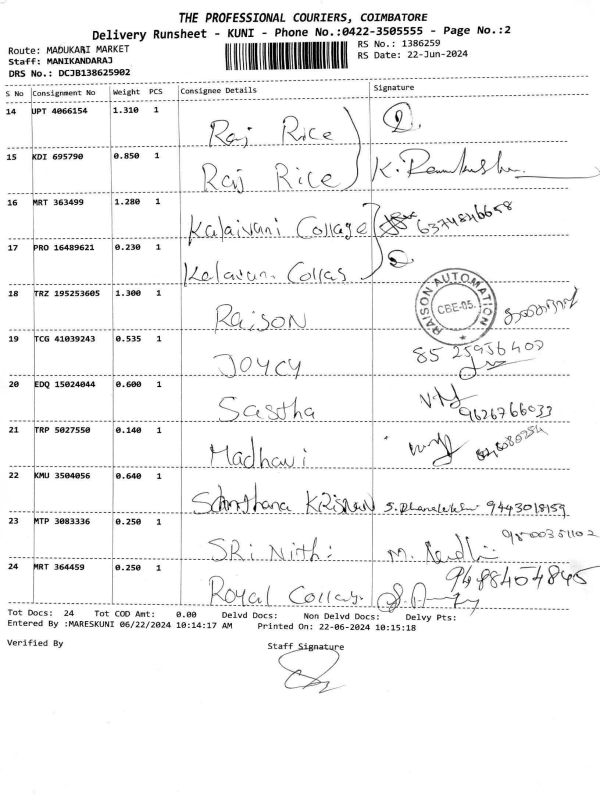 THE PROFESSIONAL COURIERS, COIMBATORE
Delivery Runsheet - KUNI - Phone No.:0422-3505555 - Page No.:2
Route: MADUKARI MARKET
RS No.: 1386259
Staff: MANIKANDARAJ
RS Date: 22-Jun-2024
DRS No.: DCJB138625902
S No Consignment No Weight PCS Consignee Details Signature
14 UPT 4066154 1.310 1 Raj Rice
15 KDI 695790 0.850 1 Raj Rice
16 MRT 363499 1.280 1 Kalaivani Collage 6374846658
17 PRO 16489621 0.230 1
18 TRZ 195253605 1.300 1 RAISON
RAISON AUTOMATION
CBE-05.
19 TCG 41039243 0.535 1 JOYCY
20 EDQ 15024044 0.600 1 Sastha 9626766033
21 TRP 5027550 0.140 1 Madhavi
22 KMU 3504056 0.640 1 KRISNAN 9443018159
23 MTP 3083336 0.250 1 SRi Nithi
24 MRT 364459 0.250 1 Royal 9488404845
Tot Docs: 24 Tot COD Amt: 0.00 Delvd Docs: Non Delvd Docs: Delvy Pts:
Entered By :MARESKUNI 06/22/2024 10:14:17 AM Printed On: 22-06-2024 10:15:18
Verified By
Staff Signature